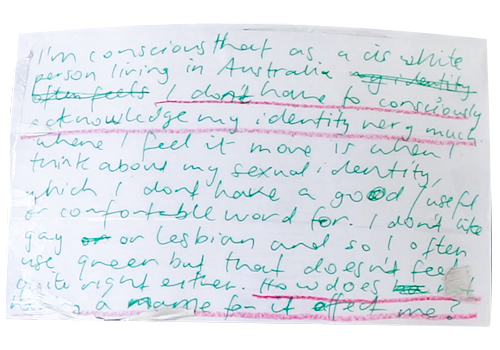 I'm conscious that as a cis white
person living in Australia my identity
often feels I don't have to consciously
acknowledge my identity very much.
where I feel it more is when I
think about my sexual identity,
which I dont have a good/useful
or comfortable word for. I don't like
gay or or lesbian and so I often
use queer but that doesn't feel
quite right either. How does not
a name for it affect me?